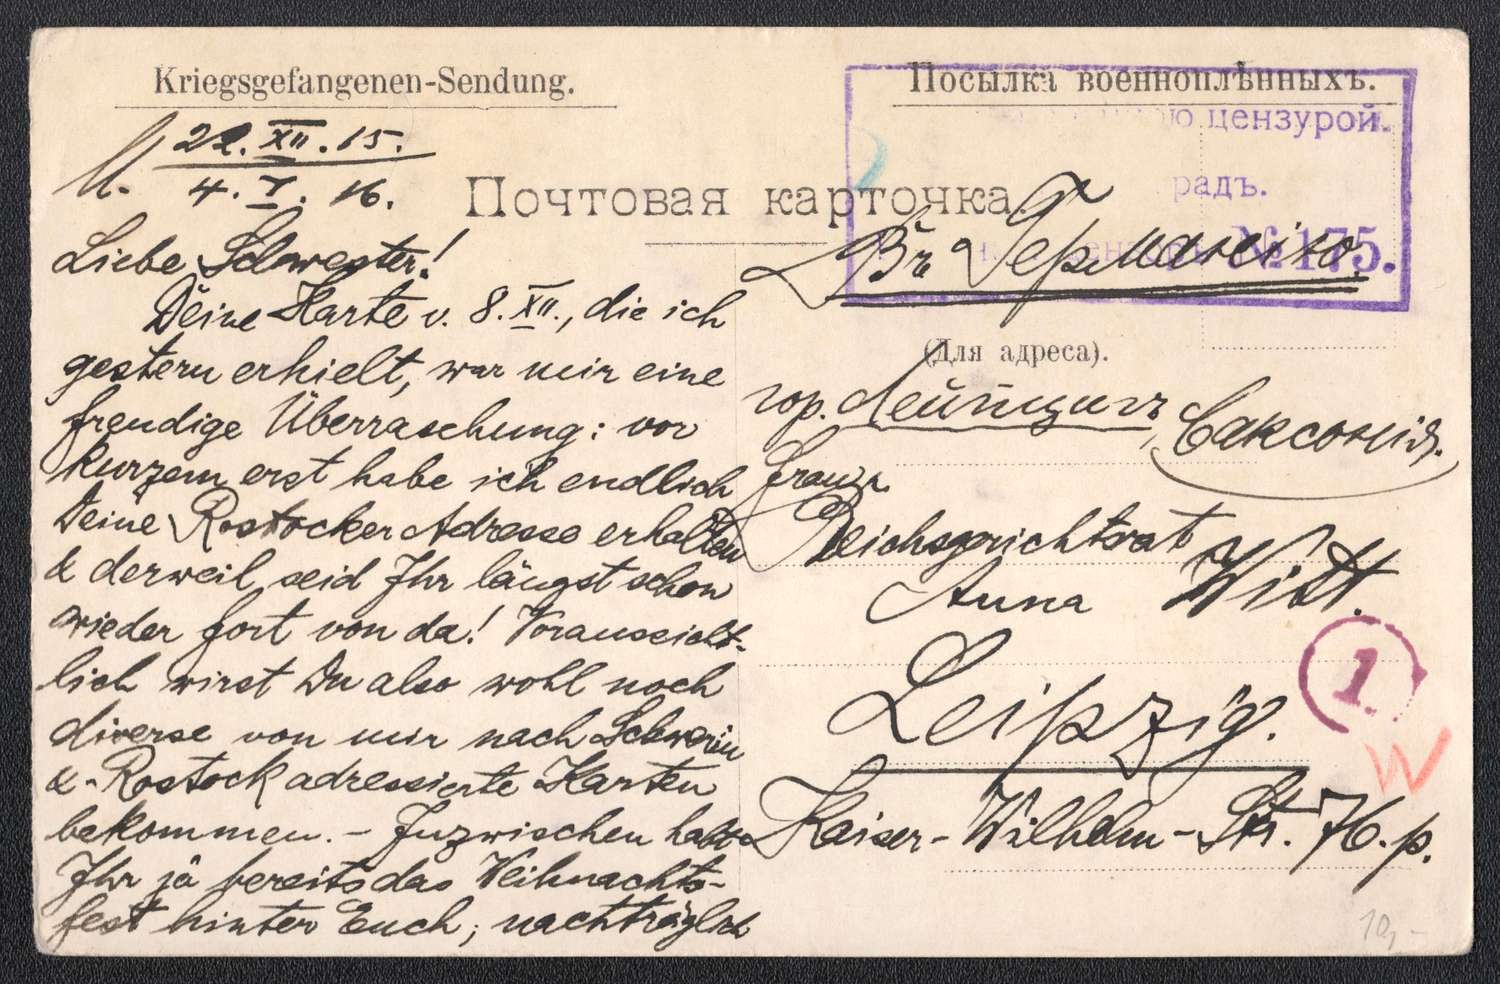 Kriegsgefangenen-Sendung.
Посылка военноплѣнныхъ.
цензурой.
радъ.
№ 175.
Почтовая карточка
22. XII. 15.
4. I. 16.
Liebe Schwester!
Deine Karte v. 8. XII., die ich
gestern erhielt, war mir eine
freudige Überraschung: vor
kurzem erst habe ich endlich
Deine Rostocker Adresse erhalten
& derweil seid Ihr längst schon
wieder fort von da! Voraussicht-
lich wirst Du also wohl noch
diverse von mir nach Schwerin
& Rostock adressierte Karten
bekommen. – Inzwischen habt
Ihr ja bereits das Weihnachts-
fest hinter Euch; nachträglich
Въ Германію.
(Для адреса).
гор. Лейпцигъ, Саксонія.
Frau
Reichsgerichtsrat
Anna Witt.
Leipzig.
Kaiser-Wilhelm-Str. 76. p.
1
W
10,-